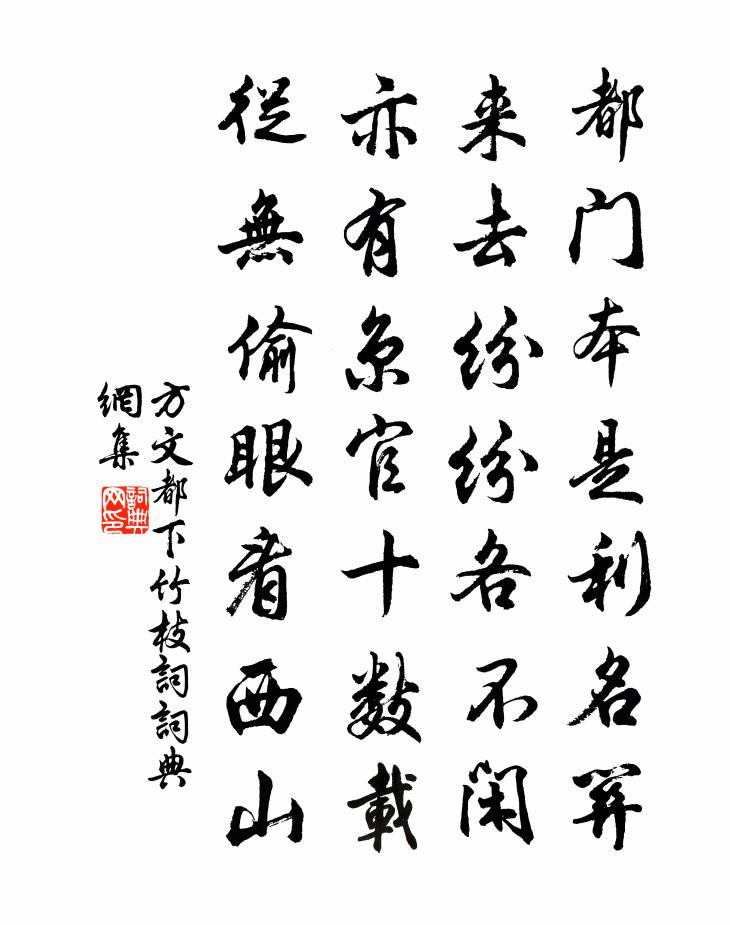 都门本是利名關
来去紛紛各不闲
亦有京官十數載
從無偷眼看西山
方文都下竹枝詞詞典
網集
詞典
网印